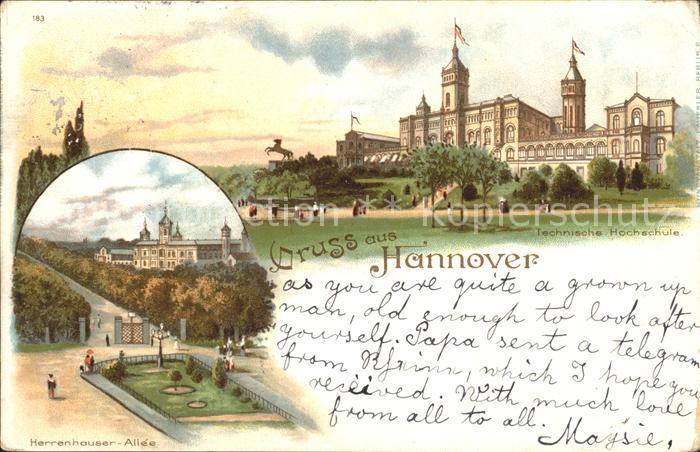 183
Technische Hochschule.
Gruss aus
Hannover
as you are quite a grown up
man, old enough to look after
yourself. Papa sent a telegram
from which I hope you
received. With much love
from all to all.
Maysie.
Herrenhauser-Allée